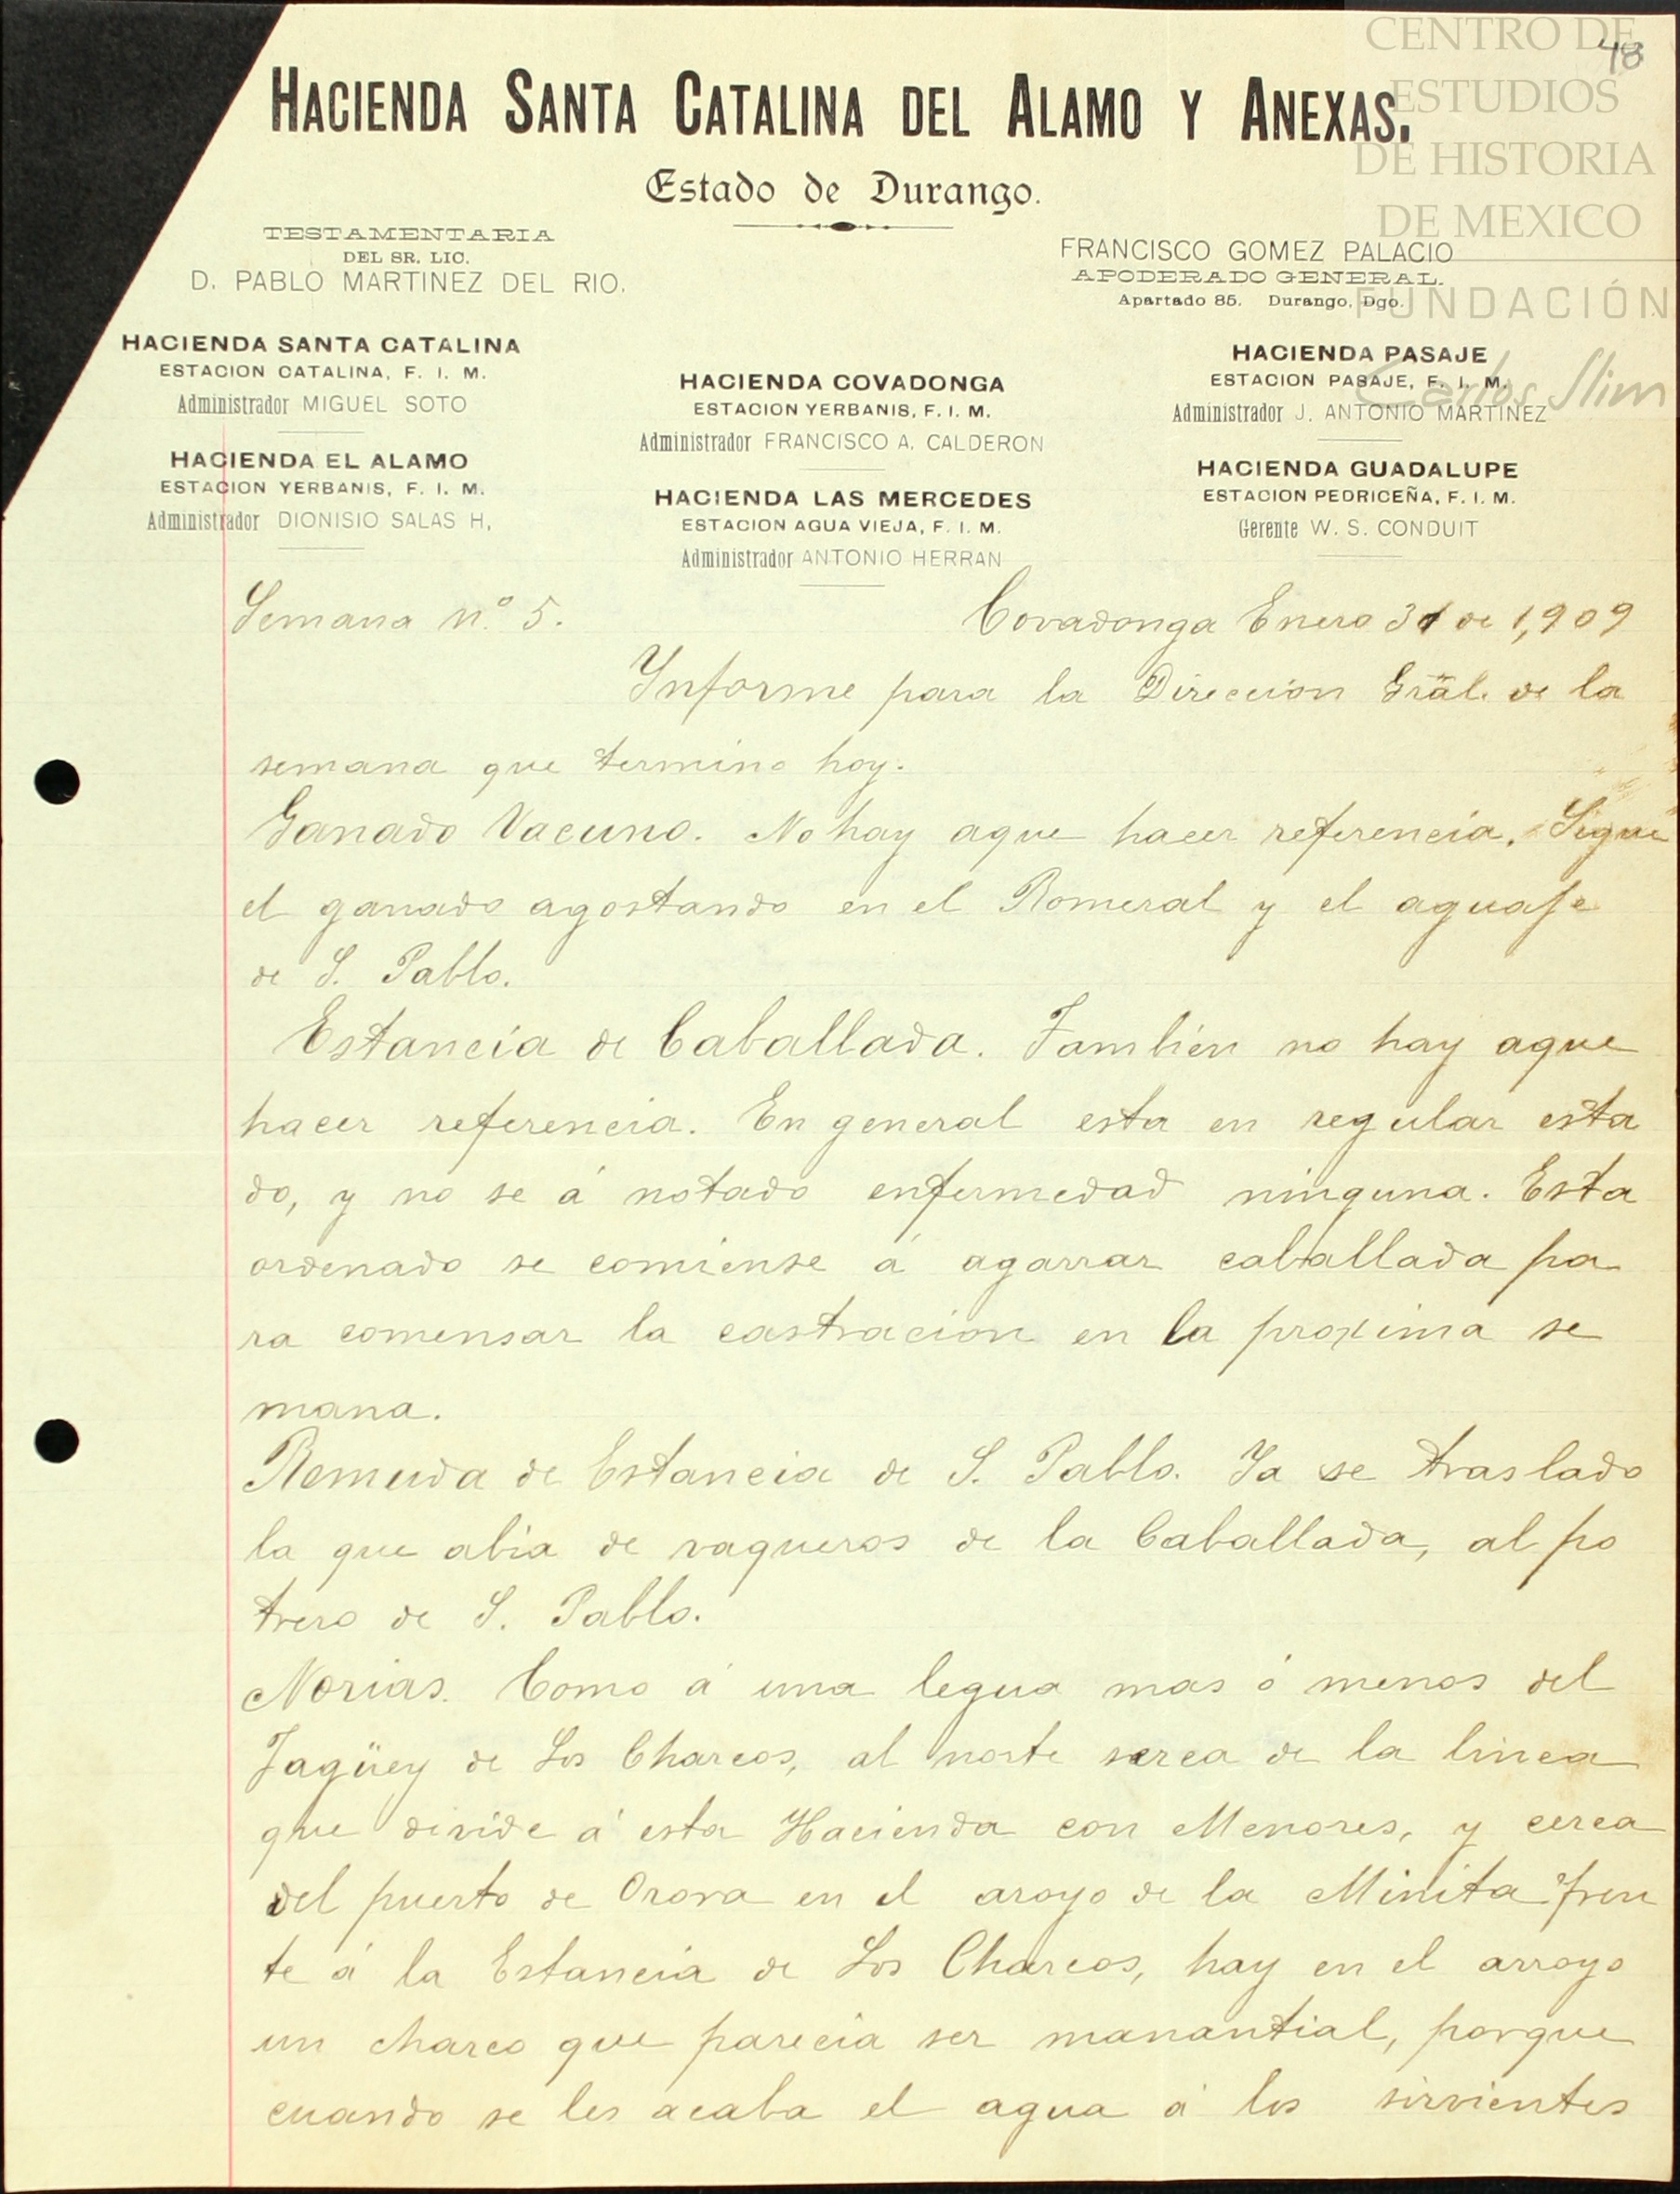 CENTRO DE
ESTUDIOS
DE HISTORIA
DE MEXICO
FUNDACIÓN
Carlos Slim
48
HACIENDA SANTA CATALINA DEL ALAMO Y ANEXAS.
Estado de Durango.
TESTAMENTARIA
DEL SR. LIC.
D. PABLO MARTINEZ DEL RIO.
FRANCISCO GOMEZ PALACIO
APODERADO GENERAL.
Apartado 85. Durango, Dgo.
HACIENDA SANTA CATALINA
ESTACION CATALINA, F. I. M.
Administrador MIGUEL SOTO
HACIENDA EL ALAMO
ESTACION YERBANIS, F. I. M.
Administrador DIONISIO SALAS H,
HACIENDA COVADONGA
ESTACION YERBANIS, F. I. M.
Administrador FRANCISCO A. CALDERON
HACIENDA LAS MERCEDES
ESTACION AGUA VIEJA, F. I. M.
Administrador ANTONIO HERRAN
HACIENDA PASAJE
ESTACION PASAJE, F. I. M.
Administrador J. ANTONIO MARTINEZ
HACIENDA GUADALUPE
ESTACION PEDRICEÑA, F. I. M.
Gerente W. S. CONDUIT
Semana n.º 5. Covadonga Enero 31 de 1,909
Ynforme para la Direccion Gräl. de la
semana que termino hoy.
Ganado Vacuno. No hay aque hacer referencia. Sigue
el ganado agostando en el Romeral y el aguaje
de S. Pablo.
Estancia de Caballada. Tambien no hay aque
hacer referencia. En general esta en regular esta
do, y no se á notado enfermedad ninguna. Esta
ordenado se comiense á agarrar caballada pa
ra comensar la castracion en la proxima se
mana.
Remuda de Estancia de S. Pablo. Ya se traslado
la que abia de vaqueros de la Caballada, al po
trero de S. Pablo.
Norias. Como á una legua mas ó menos del
Jagüey de Los Charcos, al norte serca de la linea
que divide á esta Hacienda con Menores, y cerca
del puerto de Orova en el aroyo de la Minita fren
te á la Estancia de Los Charcos, hay en el arroyo
un charco que parecia ser manantial, porque
cuando se les acaba el agua á los sirvientes